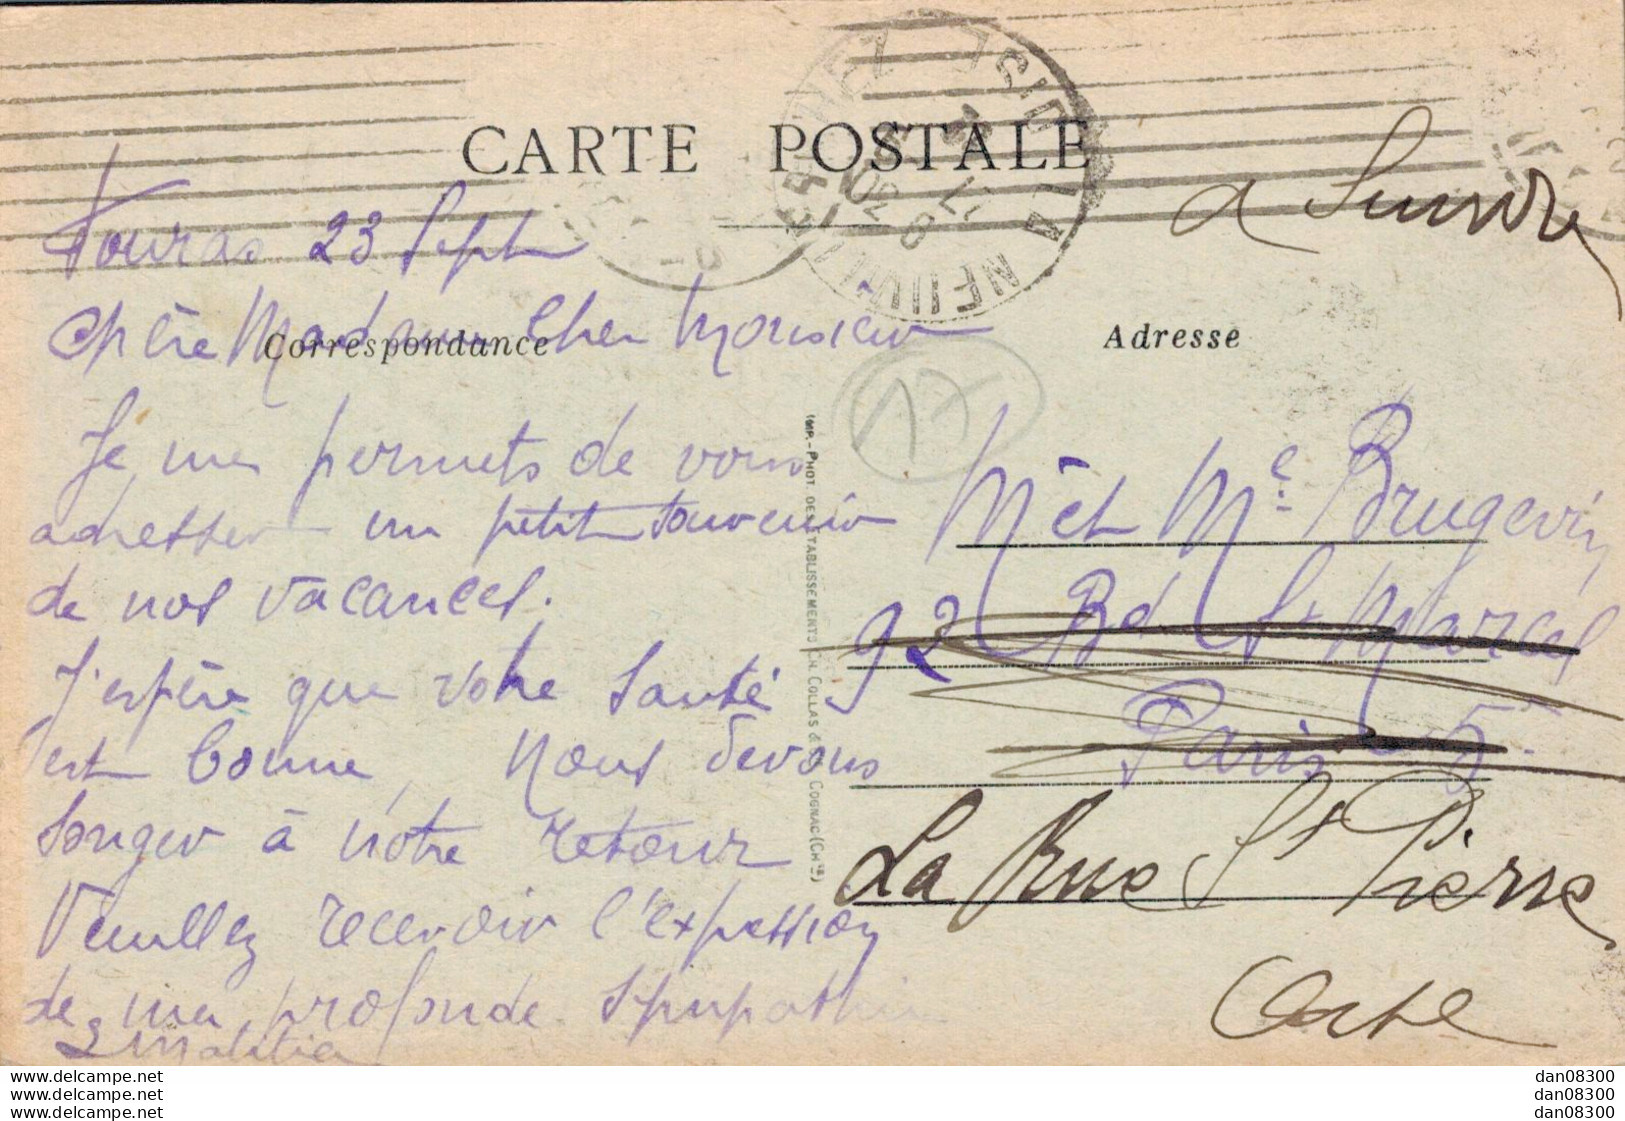 CARTE POSTALE
à Suivre
Fouras 23 Sept
Correspondance
Adresse
Chère Madame Cher Monsieur
Je me permets de vous
adresser un petit souvenir
de nos vacances.
J'espère que votre Santé
est bonne, Nous devons
Songer à notre retour
Veuillez recevoir l'expession
de ma profonde Simpathie
IMP.-PHOT. DES ETABLISSEMENTS H. COLLAS & Cie COGNAC (Chte)
17
Mr et Me Brugevin
92 Bd St Marcel
Paris - 5
La Rue St Pierre
Oise
www.delcampe.net
www.delcampe.net
www.delcampe.net
dan08300
dan08300
dan08300